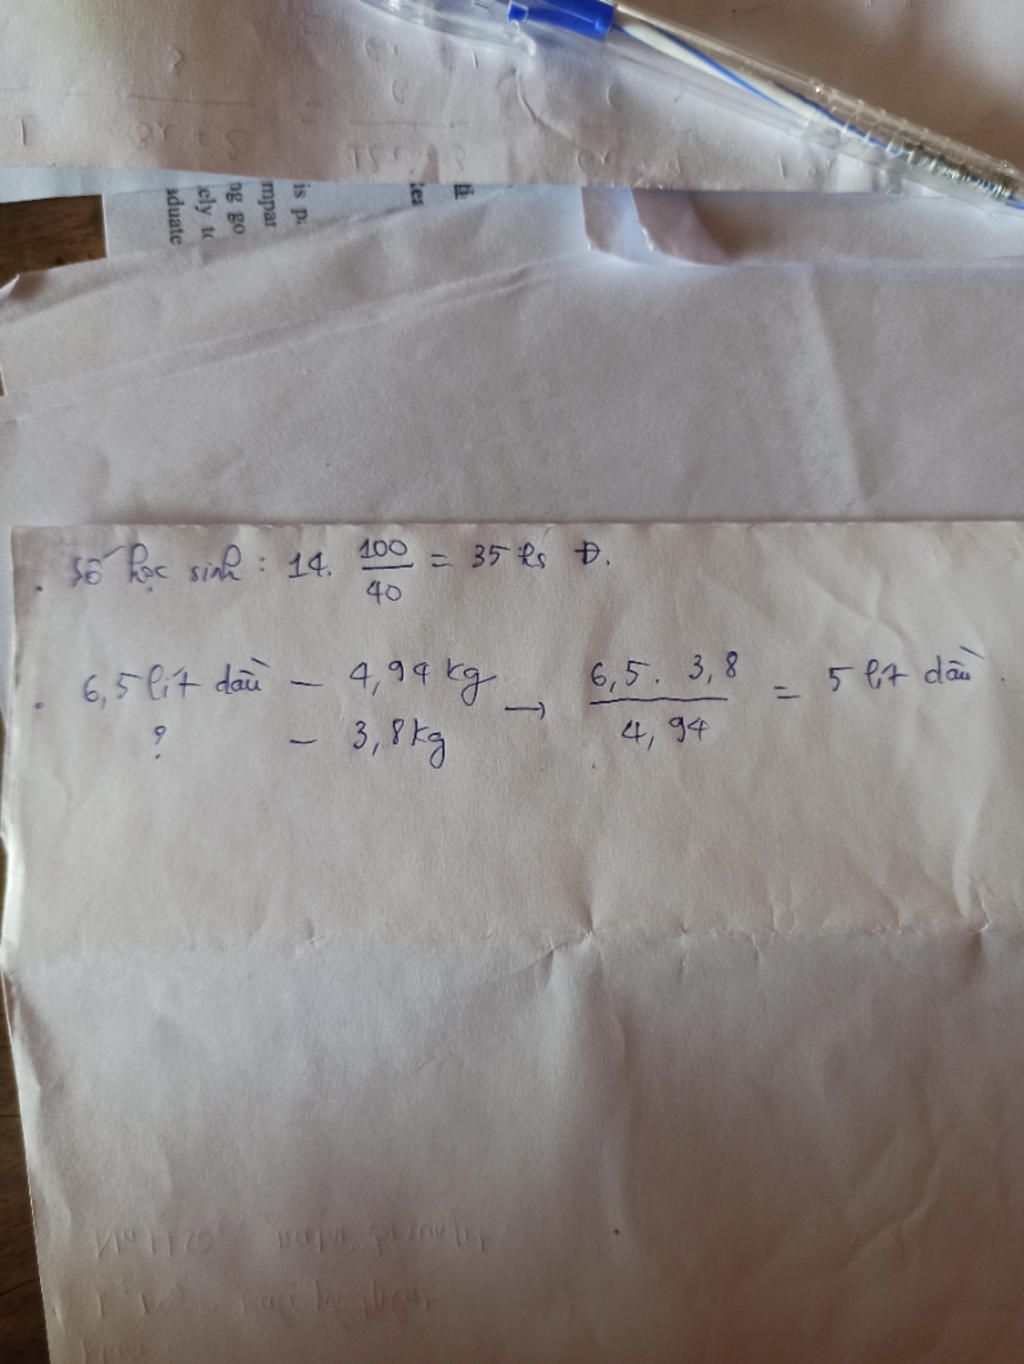 is pa
mpar
ng go
cely to
aduate
kes
. Số học sinh : 14. 100/40 = 35 hs Đ.
. 6,5 lít dầu – 4,94 kg → 6,5 . 3,8 / 4,94 = 5 lít dầu.
? – 3,8 kg